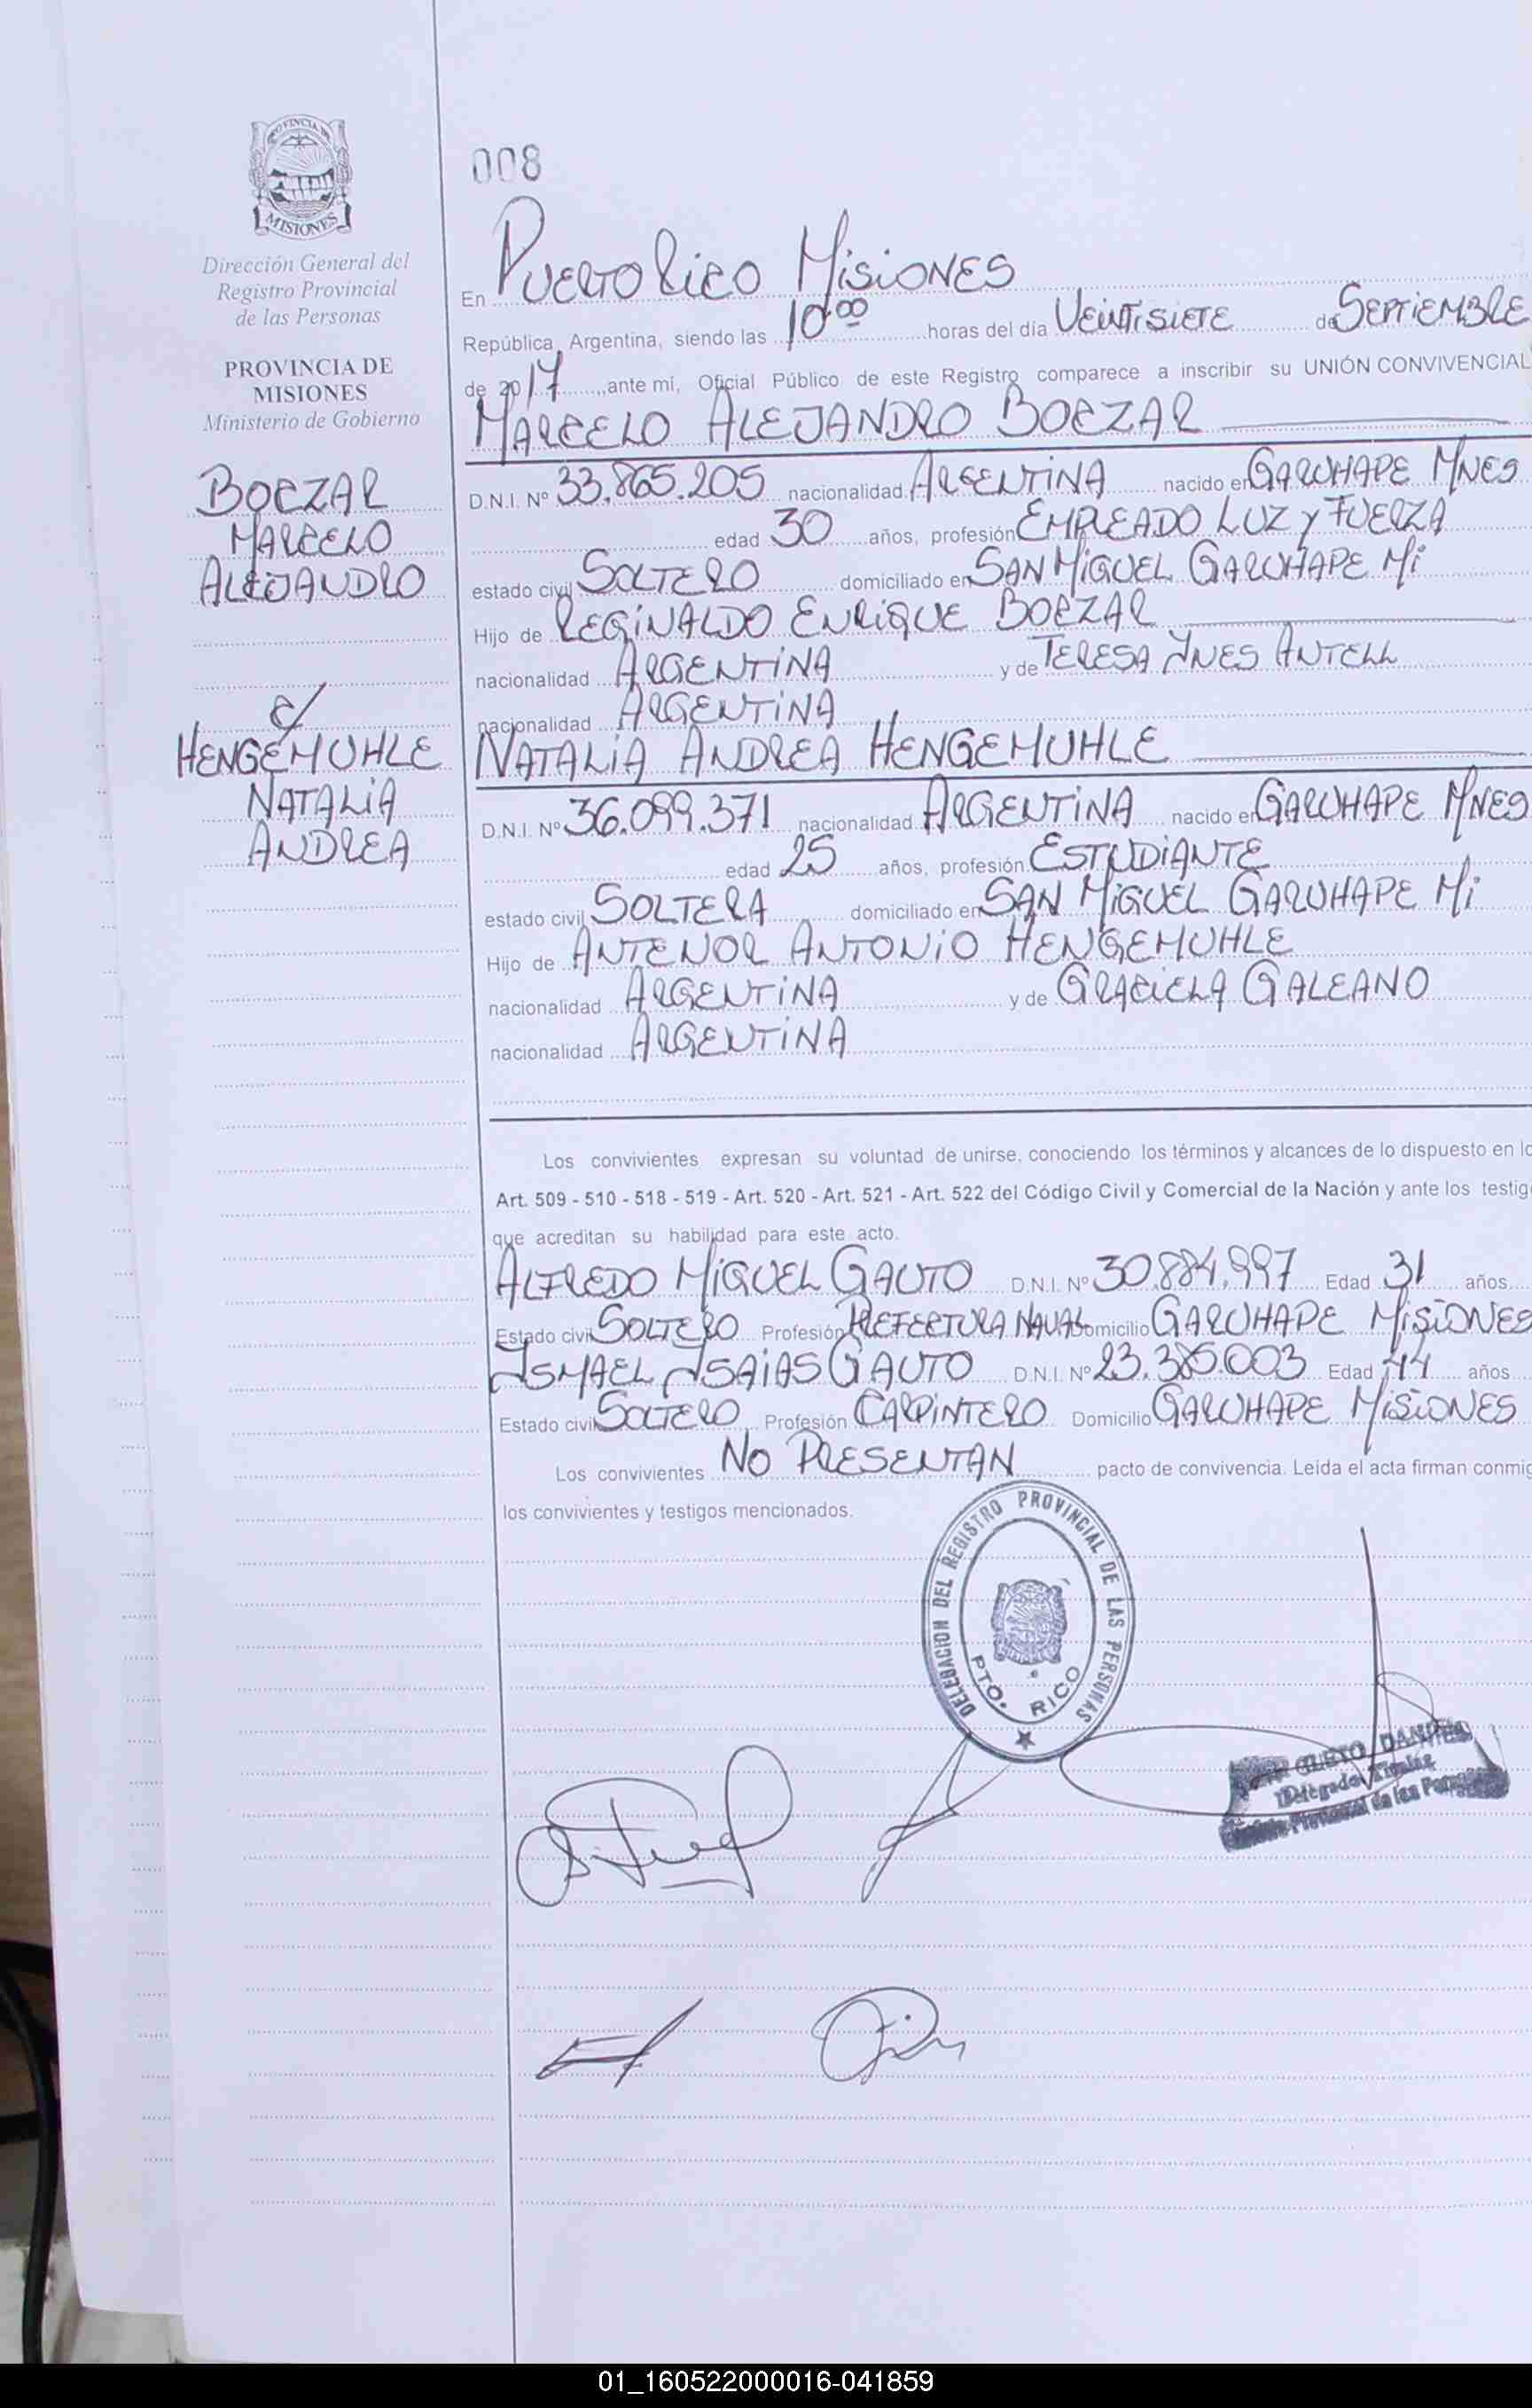 PROVINCIA DE
MISIONES
Dirección General del
Registro Provincial
de las Personas
PROVINCIA DE
MISIONES
Ministerio de Gobierno
BOEZAR
MARCELO
ALEJANDRO
c/
HENGEMUHLE
NATALIA
ANDREA
008
En PUERTO RICO MISIONES
República Argentina, siendo las 10:00 horas del día VEINTISIETE de SEPTIEMBRE
de 2017, ante mí, Oficial Público de este Registro comparece a inscribir su UNIÓN CONVIVENCIAL
MARCELO ALEJANDRO BOEZAR
D.N.I. Nº 33.865.205 nacionalidad ARGENTINA nacido en GARUHAPE MNES
edad 30 años, profesión EMPLEADO LUZ y FUERZA
estado civil SOLTERO domiciliado en SAN MIGUEL GARUHAPE Mi
Hijo de REGINALDO ENRIQUE BOEZAR
nacionalidad ARGENTINA y de TERESA YNES ANTELL
nacionalidad ARGENTINA
NATALIA ANDREA HENGEMUHLE
D.N.I. Nº 36.099.371 nacionalidad ARGENTINA nacido en GARUHAPE MNES
edad 25 años, profesión ESTUDIANTE
estado civil SOLTERA domiciliado en SAN MIGUEL GARUHAPE Mi
Hijo de ANTENOR ANTONIO HENGEMUHLE
nacionalidad ARGENTINA y de GRACIELA GALEANO
nacionalidad ARGENTINA
Los convivientes expresan su voluntad de unirse, conociendo los términos y alcances de lo dispuesto en lo
Art. 509 - 510 - 518 - 519 - Art. 520 - Art. 521 - Art. 522 del Código Civil y Comercial de la Nación y ante los testig
que acreditan su habilidad para este acto.
ALFREDO MIGUEL GAUTO D.N.I. Nº 30.884.997 Edad 31 años
Estado civil SOLTERO Profesión PREFECTURA NAVAL Domicilio GARUHAPE MISIONES
ISMAEL ISAIAS GAUTO D.N.I. Nº 23.385.003 Edad 44 años
Estado civil SOLTERO Profesión CARPINTERO Domicilio GARUHAPE MISIONES
Los convivientes NO PRESENTAN pacto de convivencia. Leida el acta firman conmig
los convivientes y testigos mencionados.
DELEGACION DEL REGISTRO PROVINCIAL DE LAS PERSONAS
PTO. RICO
DANIEL
Delegado Titular
Provincial de las
01_160522000016-041859